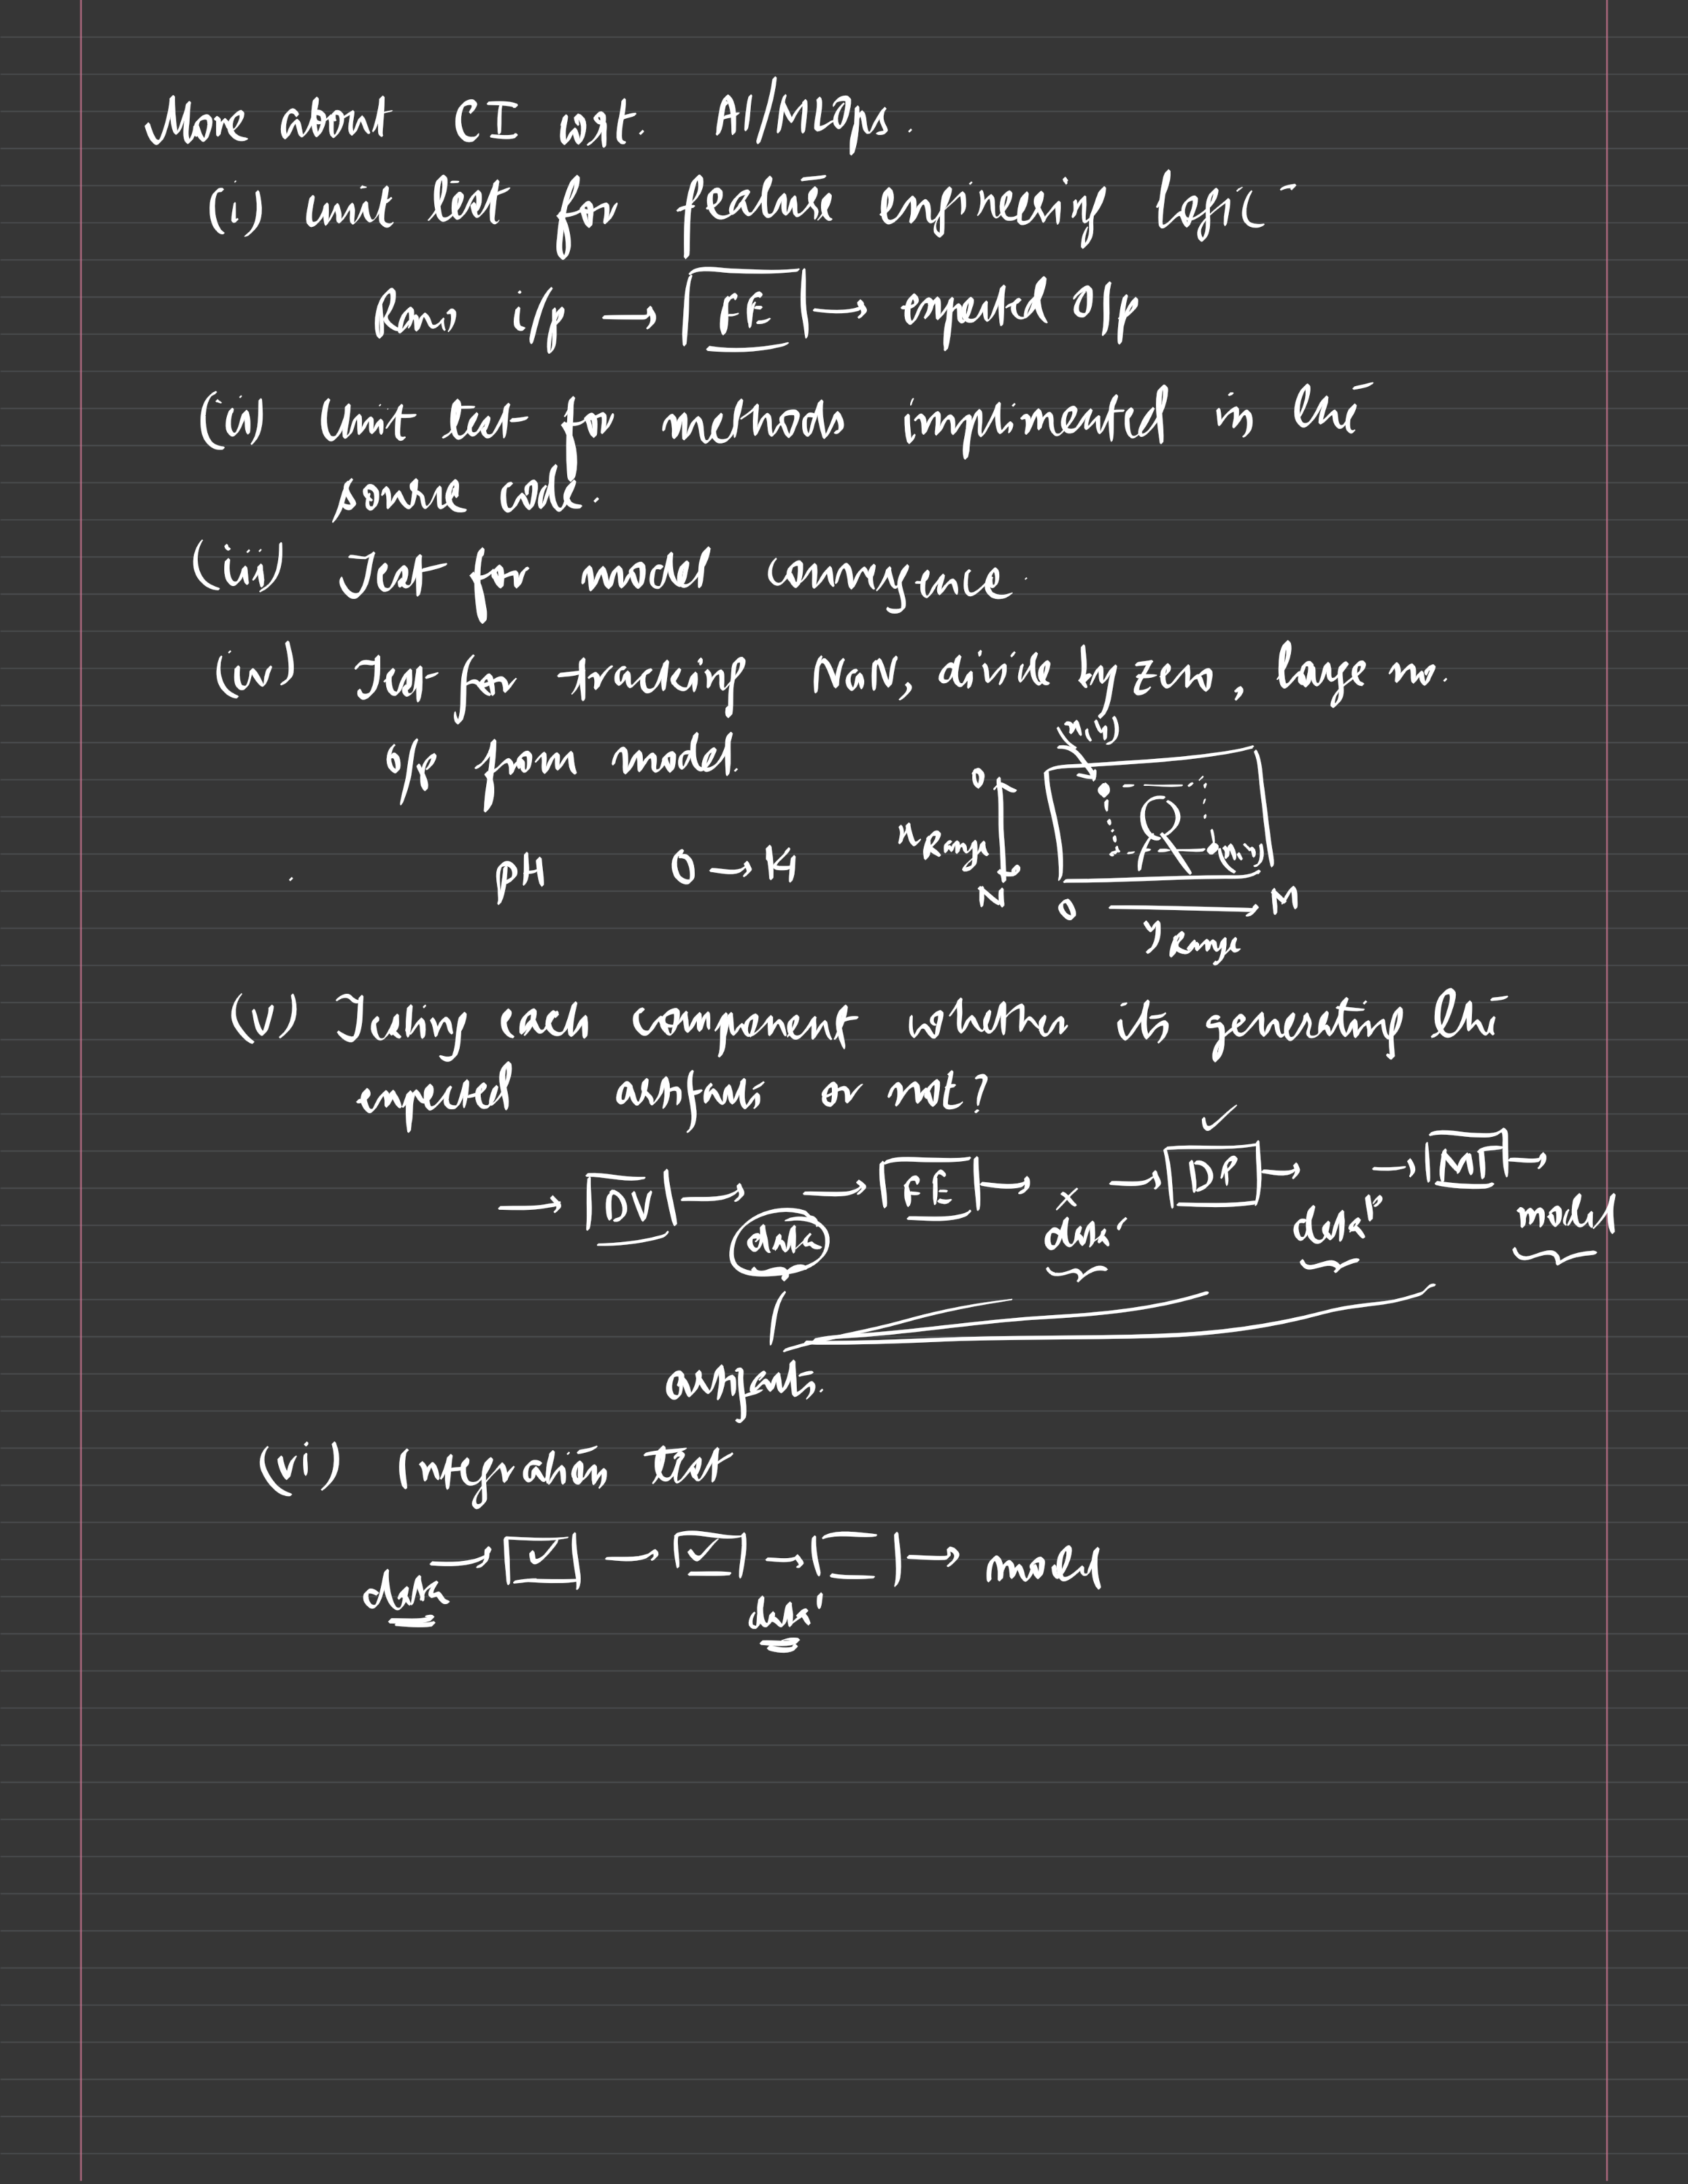 More about CI wrt. A/MLOps.
(i) unit test for feature engineering logic
i/p → FE → expected O/p
(ii) Unit test for methods implemented in the
source code.
(iii) Test for model convergence.
(iv) Test for tracking NaN, divide by zero, large no.
o/p from model.
pH 0 → 14
x Range
0
N
0 → M
y Range
(v) Testing each component whether its generating the
expected artifact or not?
→ DV → → FE → → DP → → MT →
data x data' data'' model
✓
(vi) Integration test
→ → → → model
data data'